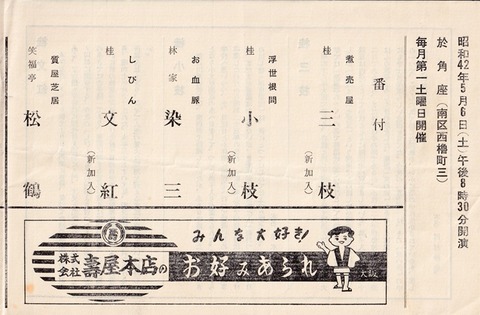 昭和42年5月6日(土)午後8時30分開演
於角座(南区西櫓町三)
毎月第一土曜日開催
番付
煮売屋
桂 三枝
(新加入)
浮世根問
桂 小枝
(新加入)
お血脈
林家 染三
しびん
桂 文紅
(新加入)
質屋芝居
笑福亭 松鶴
みんな大好き!
株式会社 壽屋本店の お好みあられ
大阪